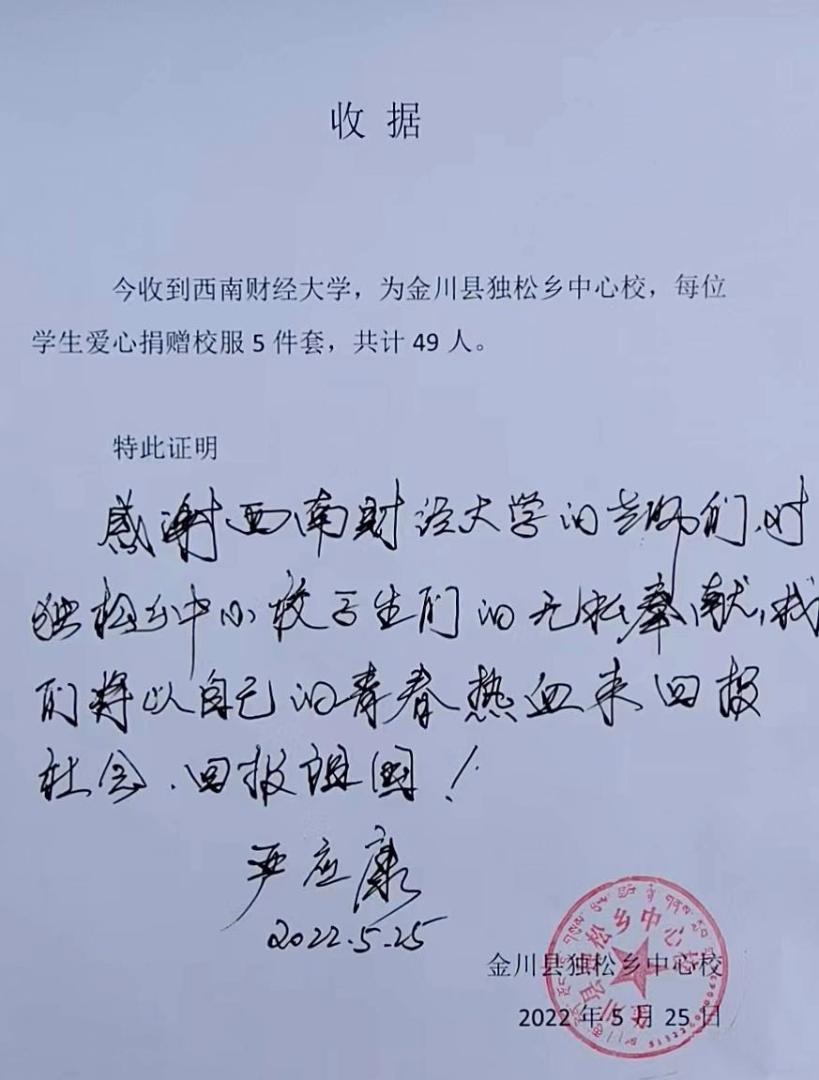 收据
今收到西南财经大学，为金川县独松乡中心校，每位
学生爱心捐赠校服 5 件套，共计 49 人。
特此证明
感谢西南财经大学的老师们,对
独松乡中心校学生们的无私奉献,我
们将以自己的青春热血来回报
社会.回报祖国！
严应康
2022.5.25
金川县独松乡中心校
2022 年 5 月 25 日